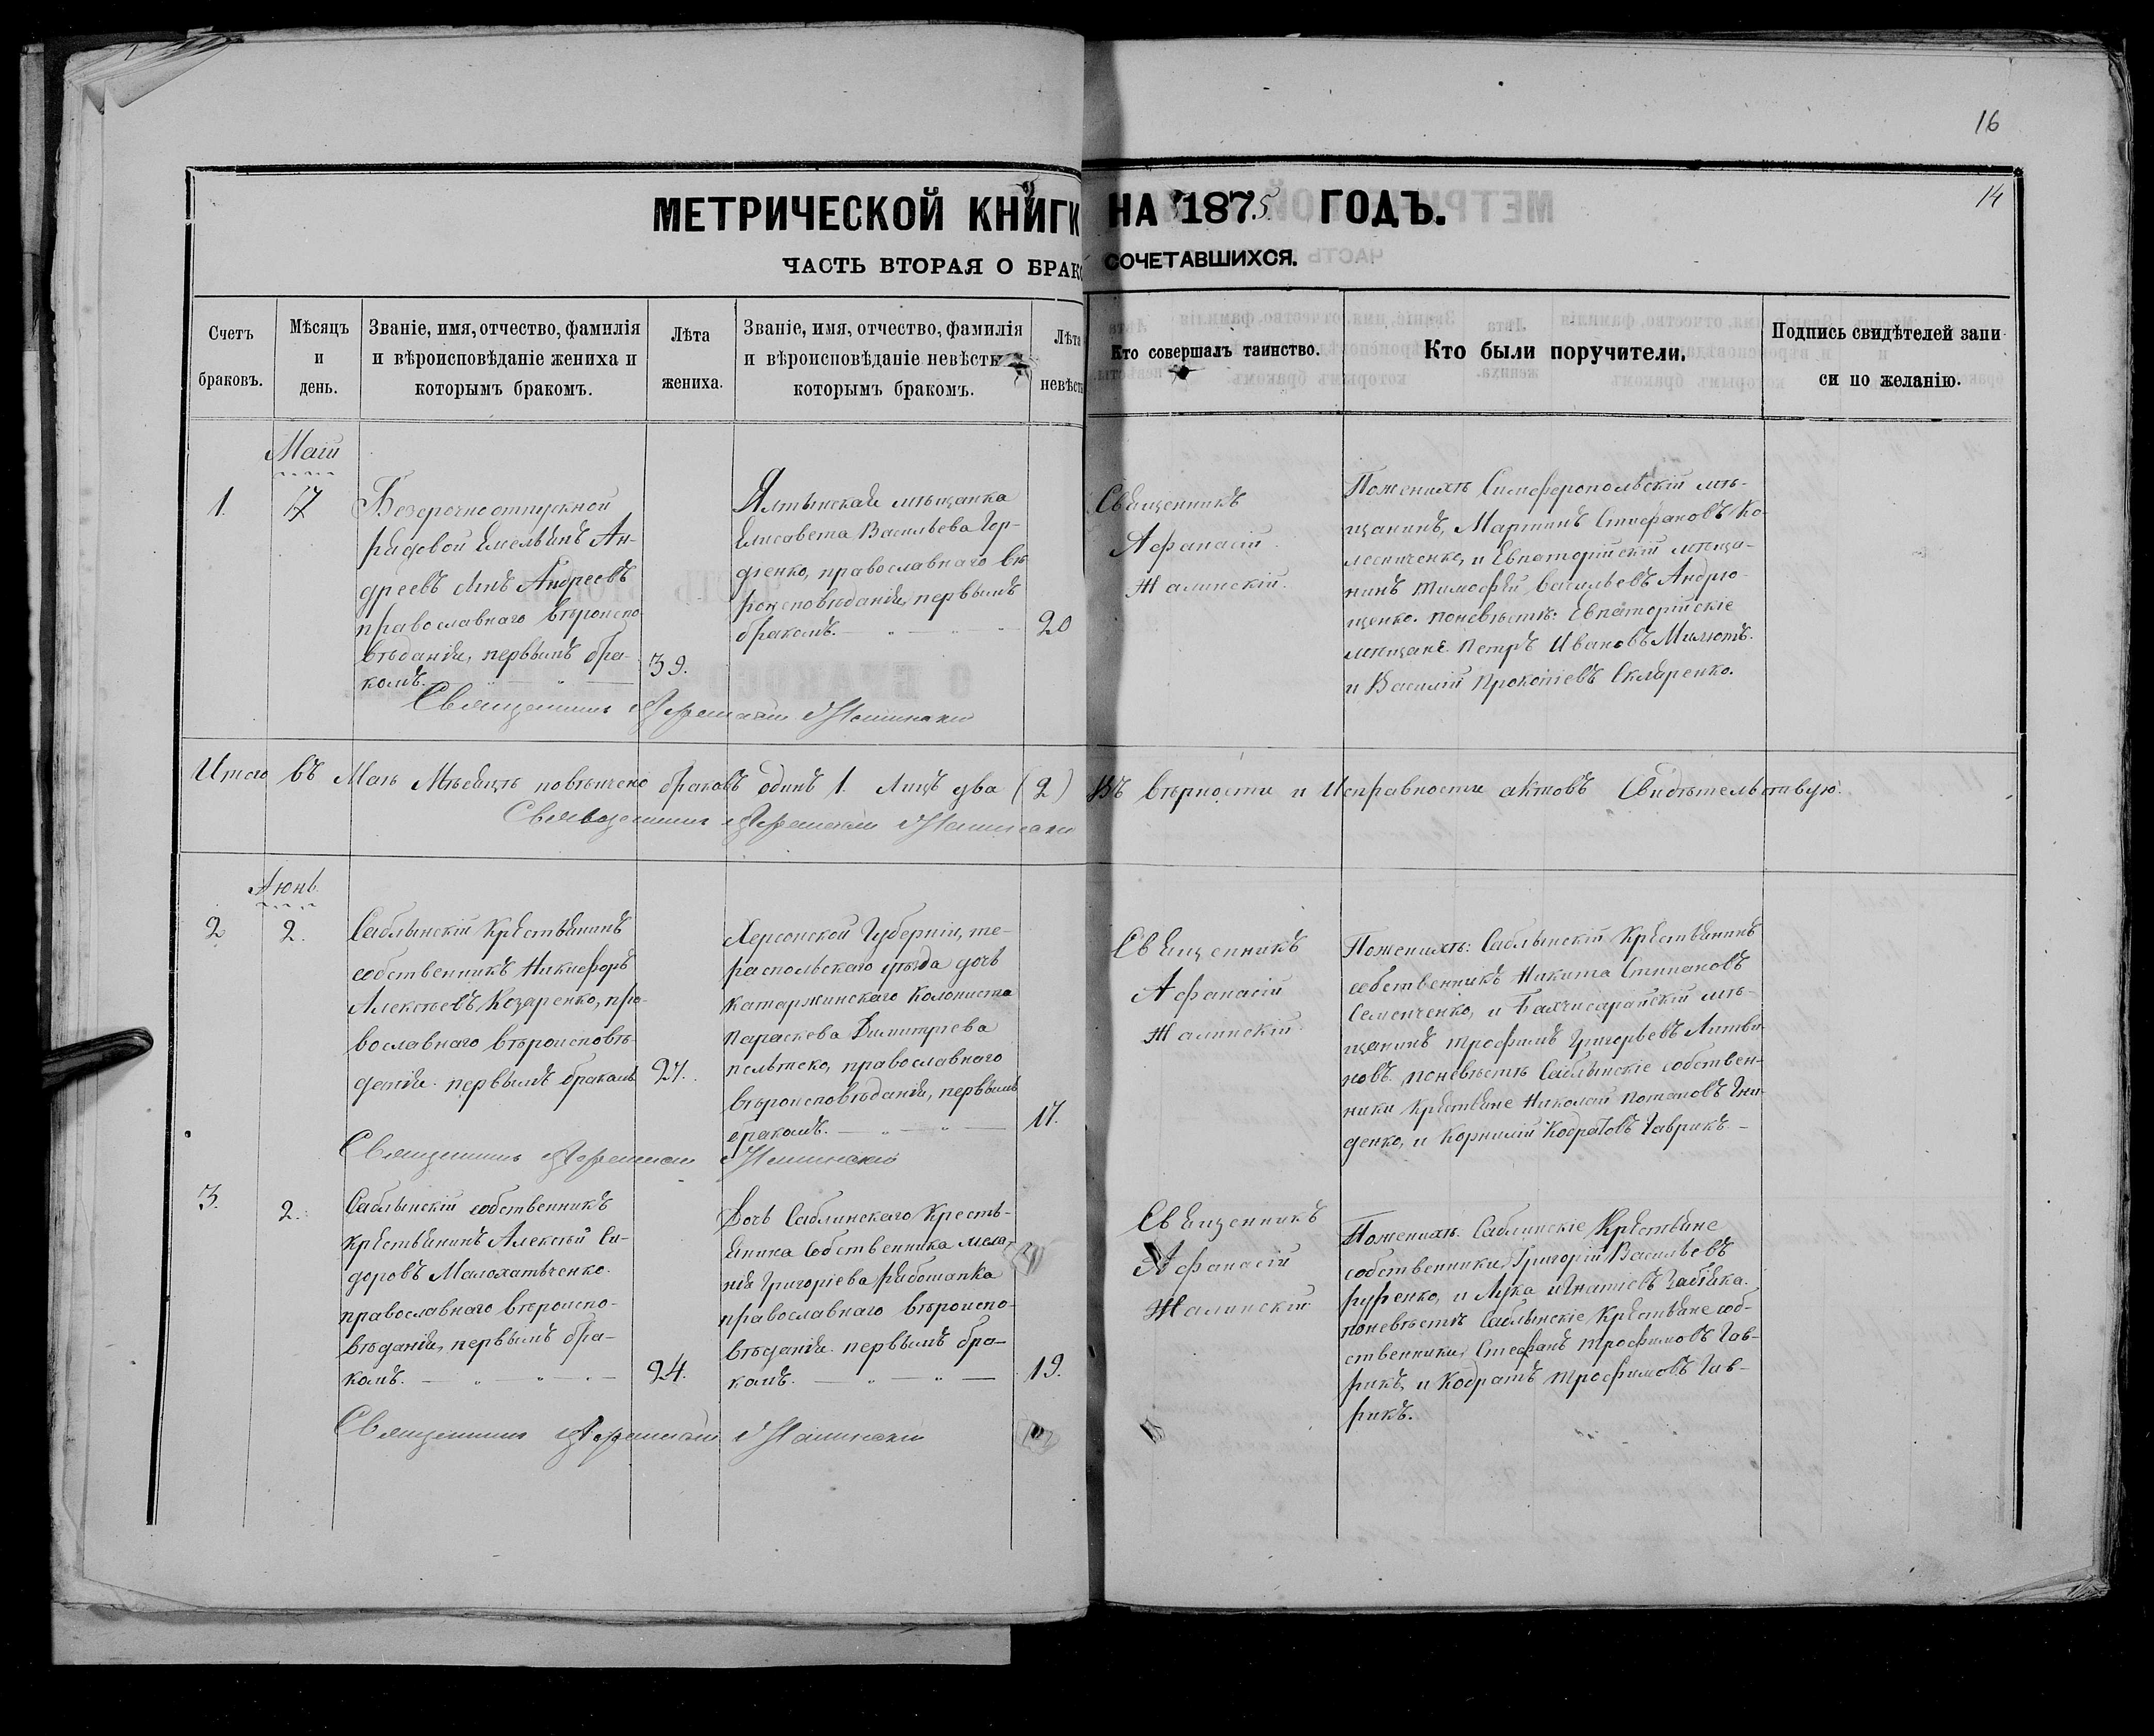 16
14
МЕТРИЧЕСКОЙ КНИГИ НА 1875 ГОДЪ.
ЧАСТЬ ВТОРАЯ О БРАКО СОЧЕТАВШИХСЯ.
Счетъ браковъ.
Мѣсяцъ и день.
Званіе, имя, отчество, фамилія
и вѣроисповѣданіе жениха и
которымъ бракомъ.
Лѣта жениха.
Званіе, имя, отчество, фамилія
и вѣроисповѣданіе невѣсты и
которымъ бракомъ.
Лѣта невѣсты
Кто совершалъ таинство.
Кто были поручители.
Подпись свидѣтелей запи
си по желанію.
Маій
1.
17
Безсрочноотпускной
рядовой Емельянъ Ан-
дреевъ сынъ Андреевъ
православнаго вѣроиспо
вѣданія, первымъ бра-
комъ.
39.
Ялтынская мѣщанка
Елисавета Васильева Гор-
дѣенко, православнаго вѣ
роисповѣданія, первымъ
бракомъ.
20
Священникъ
Афанасій
Жалинскій.
Пожениху Симферопольскій мѣ-
щанинъ, Мартинъ Стефановъ Ко-
лесниченко, и Евпаторійскій мѣща-
нинъ Тимофѣй Васильевъ Андрю-
щенко. поневѣстѣ: Евпаторійскіе
мѣщане Петръ Ивановъ Милютъ.
и Василій Прокопіевъ Скляренко.
Священникъ Афанасій Жалинскій
Итого въ Маѣ Мѣсяцѣ повѣнчено браковъ одинъ 1. Лицъ два (2) Въ вѣрности и Исправности актовъ Свидѣтельствую.
Священникъ Афанасій Жалинскій
Іюнь
2
2.
Саблынскій Крестьянинъ
собственникъ Никифоръ
Алексѣевъ Козаренко, пра-
вославнаго вѣроисповѣ-
денія. первымъ бракомъ
27.
Херсонской Губерніи, те-
распольскаго уѣзда дочь
Катаржинскаго Колониста
Параскева Димитріева
православнаго
вѣроисповѣданія, первымъ
бракомъ.
17.
Священникъ
Афанасій
Жалинскій
Пожениху: Саблынскій Крестьянинъ
собственникъ Никита Степановъ
Семенченко, и Бахчисарайскій мѣ-
щанинъ Трофимъ Григорьевъ Литви-
новъ. поневѣстѣ Саблынскіе собствен-
ники Крестьяне Николай Потаповъ Гни-
денко, и Корнилій Кодратовъ Гаврикъ. -
Священникъ Афанасій Жалинскій
3.
2.
Саблынскій собственникъ
Крестьянинъ Алексѣй Си-
доровъ Малохатьченко.
православнаго вѣроиспо-
вѣданія, первымъ бра-
комъ.
24.
Дочь Саблинскаго Кресть-
янина Собственника Мела-
нія Григоріева Работапка
православнаго вѣроиспо-
вѣданія. первымъ бра-
комъ.
19.
Священникъ
Афанасій
Жалинскій
Пожениху. Саблинскіе Крестьяне
собственники, Григорій Васильевъ
Руренко, и Лука Игнатіевъ
поневѣстѣ Саблынскіе Крестьяне соб-
ственники, Стефанъ Трофимовъ Гав-
рикъ, и Кодратъ Трофимовъ Гав-
рикъ.
Священникъ Афанасій Жалинскій